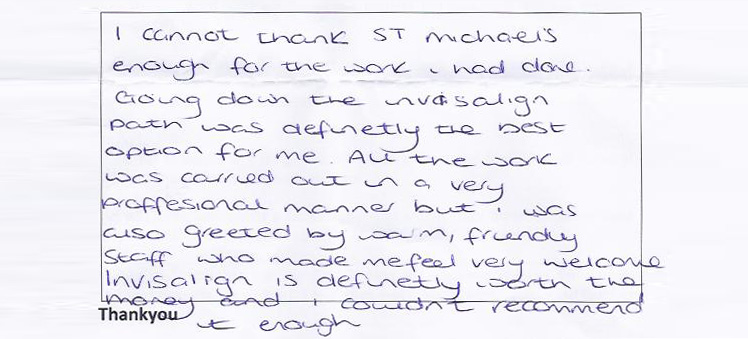 I cannot thank ST michael's
enough for the work i had done.
Going down the invisalign
path was definetly the best
option for me. All the work
was carried out in a very
proffesional manner but i was
also greeted by warm, friendly
staff who made me feel very welcome
Invisalign is definetly worth the
money and i couldn't recommend
it enough
Thankyou